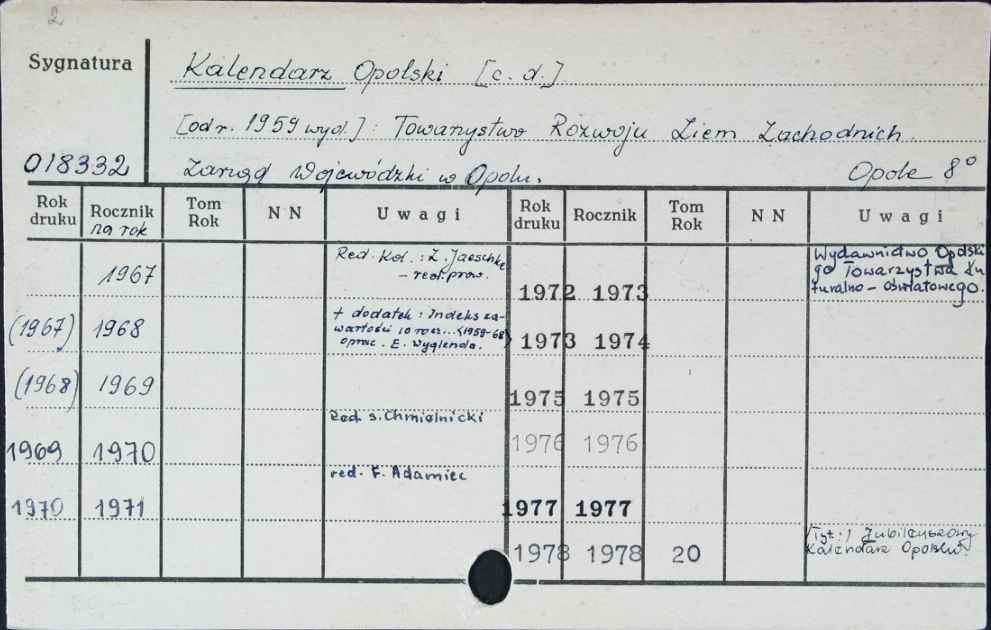 2
Sygnatura
Kalendarz Opolski [c. d.]
[od r. 1959 wyd.]: Towarzystwo Rozwoju Ziem Zachodnich.
018332 Zarząd Wojewódzki w Opolu. Opole 8°
Rok druku Rocznik na rok Tom Rok N N Uwagi Rok druku Rocznik Tom Rok N N Uwagi
1967 Red. Kol.: Z. Jaeschke
– red. prow.
1972 1973 Wydawnictwo Opolski
go Towarzystwa Ku
turalno – oświatowego.
(1967) 1968 + dodatek: Indeks za-
wartości 10 rocz... (1959-68)
oprac. E. Wyglenda.
1973 1974
(1968) 1969
1975 1975
1969 1970 Red. S. Chmielnicki
1976 1976
1970 1971 red. F. Adamiec
1977 1977
1978 1978 20 [Tyt:] Jubileuszowy
Kalendarz Opolski.